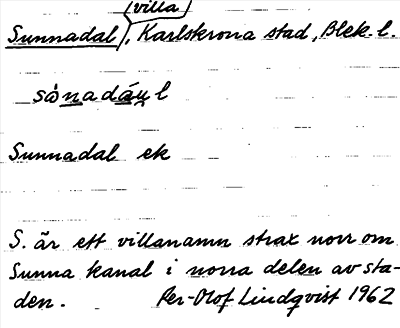 (villa)
Sunnadal, Karlskrona stad, Blek. l.
Sunnadal ek
S. är ett villanamn strax norr om
Sunna kanal i norra delen av sta-
den. Per-Olof Lindqvist 1962